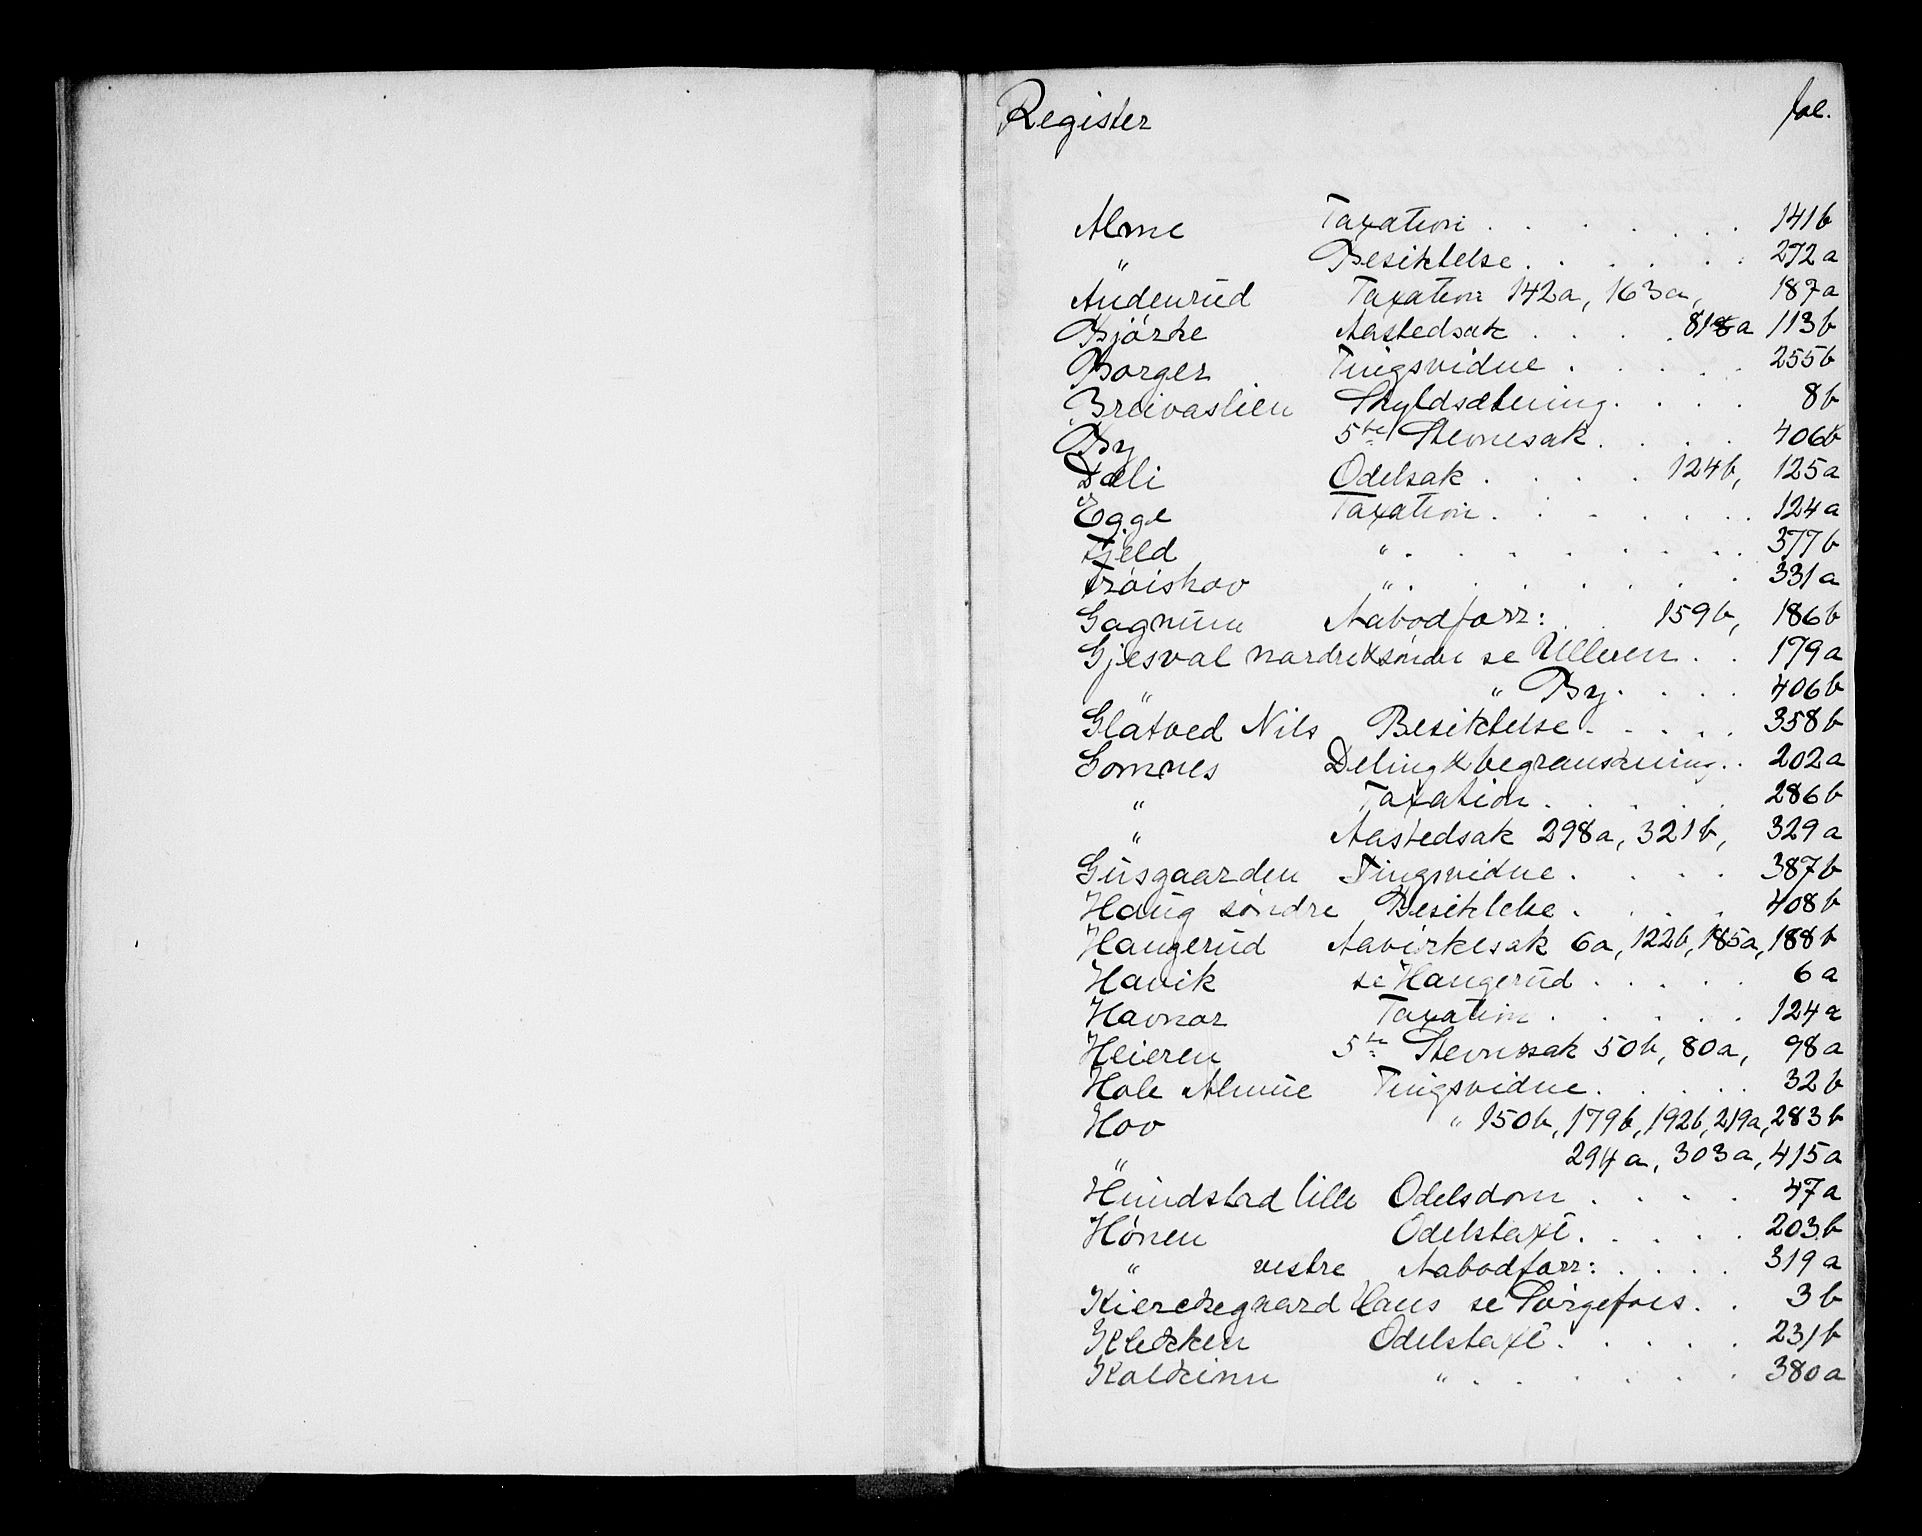 Register fol.
Alme Taxation . . . . . . 141b
" Besiktelse . . . . . 272a
Audenrud Taxation 142a, 163a, 187a
Bjørke Aastedsak . . . a 113b
Borger Tingsvidne . . . . 255b
Breivaslien Skyldsætning . . . 8b
By 5te Stevnesak . . . . 406b
Dæli Odelsak . . . . 124b, 125a
Egge Taxation . . . . . . 124a
Fjeld " . . . . . . . 377b
Frøishov " . . . . . . . 331a
Gagnum Aabodforr: . 159b, 186b
Gjesval nordre & søndre se Ulleren . . 179a
" " By . . . . 406b
Glatved Nils Besiktelse . . . . 358b
Gomnes Deling & begrænsning . . 202a
" Taxation . . . . . 286b
" Aastedsak 298a, 321b, 329a
Gusgaarden Tingsvidne . . . . 387b
Haug søndre Besiktelse . . . . 408b
Haugerud Aavirkesak 6a, 122b, 185a, 188b
Havik se Haugerud . . . . . 6a
Havnor Taxation . . . . . 124a
Heieren 5te Stevnesak 50b, 80a, 98a
Hole Almue Tingsvidne . . . . 32b
Hov " 150b, 179b, 192b, 219a, 283b
" 294a, 303a, 415a
Hundstad lille Odelsdom . . . . 47a
Hønen Odelstaxt . . . . . 203b
" vestre Aabodforr: . . . . 319a
Kierckegaard Hans se Sørgefoss . . 3b
Klekken Odelstaxt . . . . . 231b
Koldkinn " . . . . . . 380a